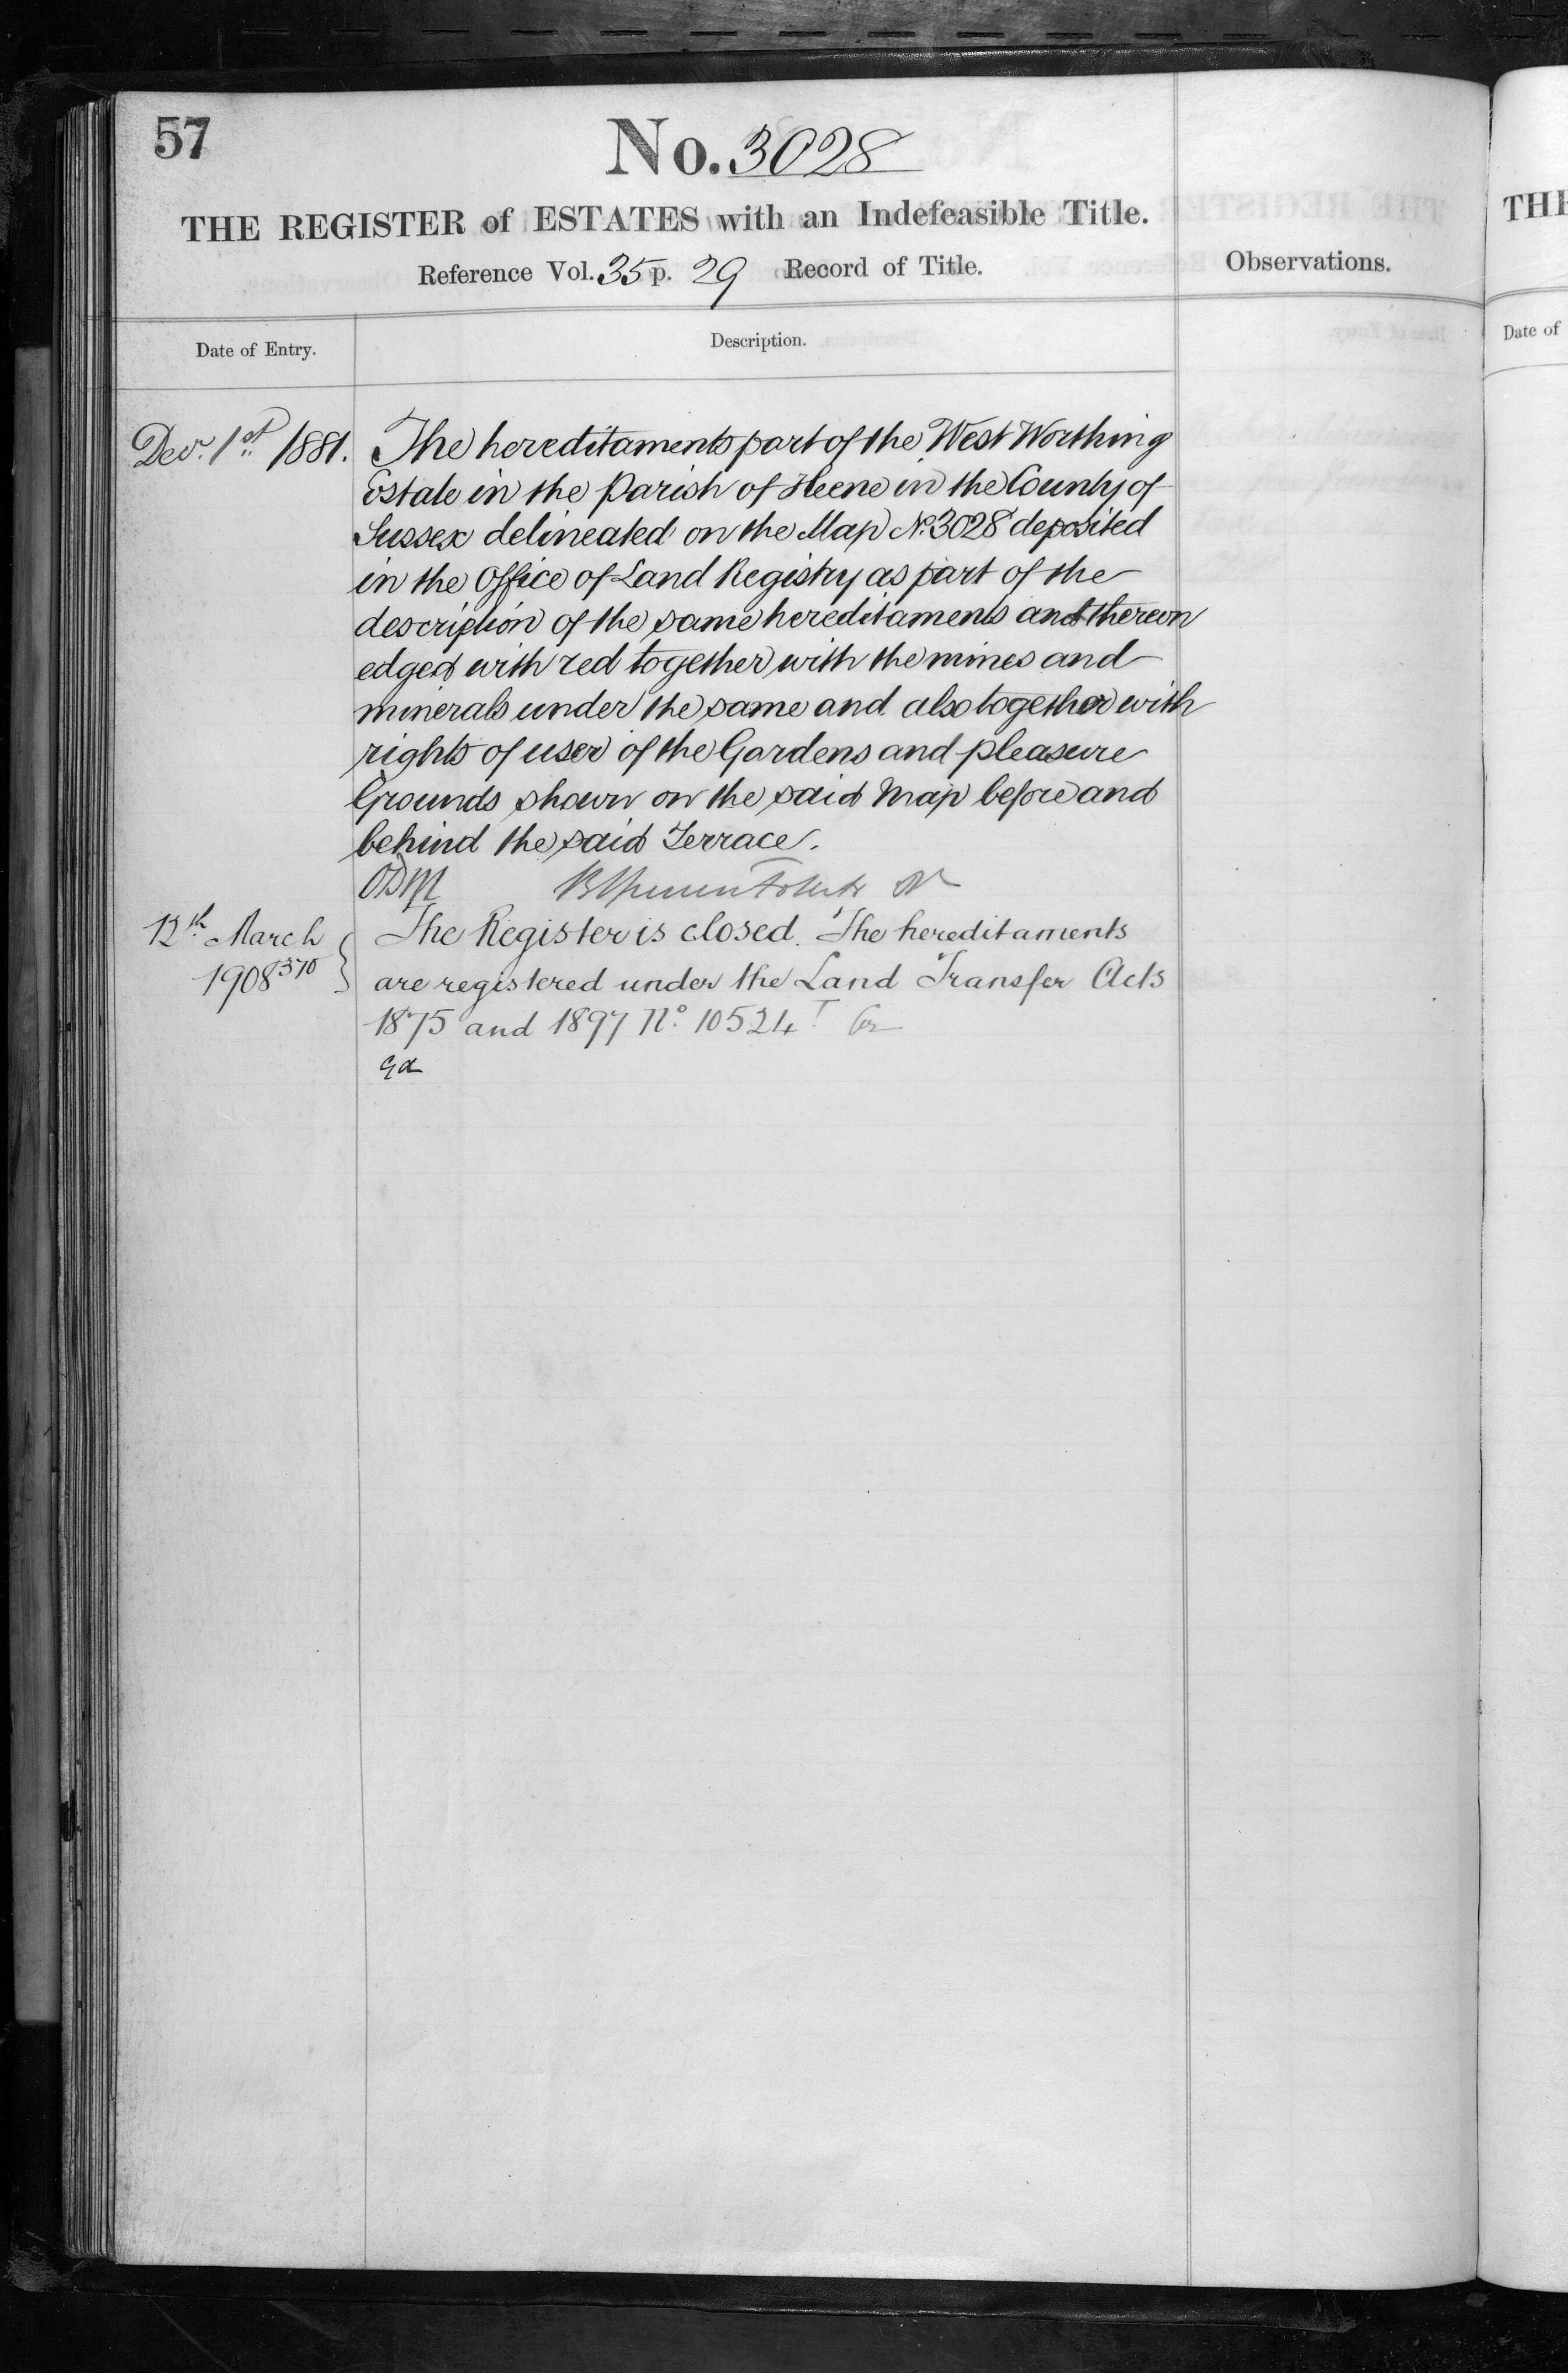 57
No. 3028
THE REGISTER of ESTATES with an Indefeasible Title.
Reference Vol. 35 p. 29 Record of Title.
Observations.
Date of Entry.
Description.
Decr. 1st 1881. The hereditaments part of the West Worthing
Estate in the Parish of Heene in the County of
Sussex delineated on the Map No. 3028 deposited
in the Office of Land Registry as part of the
description of the same hereditaments and thereon
edged with red together with the mines and
minerals under the same and also together with
rights of user of the Gardens and pleasure
Grounds shown on the said Map before and
behind the said Terrace.
12th March The Register is closed. The hereditaments
1908 370 are registered under the Land Transfer Acts
1875 and 1897 No. 10524
THE
Date of